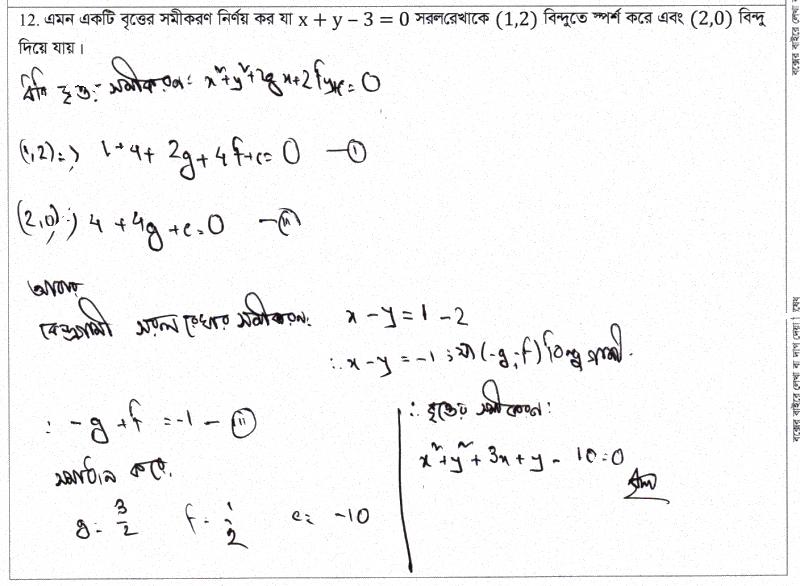 12. এমন একটি বৃত্তের সমীকরণ নির্ণয় কর যা x + y − 3 = 0 সরলরেখাকে (1,2) বিন্দুতে স্পর্শ করে এবং (2,0) বিন্দু
দিয়ে যায়।
বৃত্তের সমীকরণ: x²+y²+2gx+2fy+c=0
(1,2)⇒ 1+4+2g+4f+c=0 —(i)
(2,0)⇒ 4+4g+c=0 —(ii)
আবার
কেন্দ্রগামী সরল রেখার সমীকরণ: x-y=1-2
∴ x-y=-1 ; যা (-g,-f) বিন্দুগামী.
∴ -g+f=-1 —(ii)
সমাধান করে,
g=3/2 f=1/2 c=-10
∴ বৃত্তের সমীকরণ:
x²+y²+3x+y-10=0